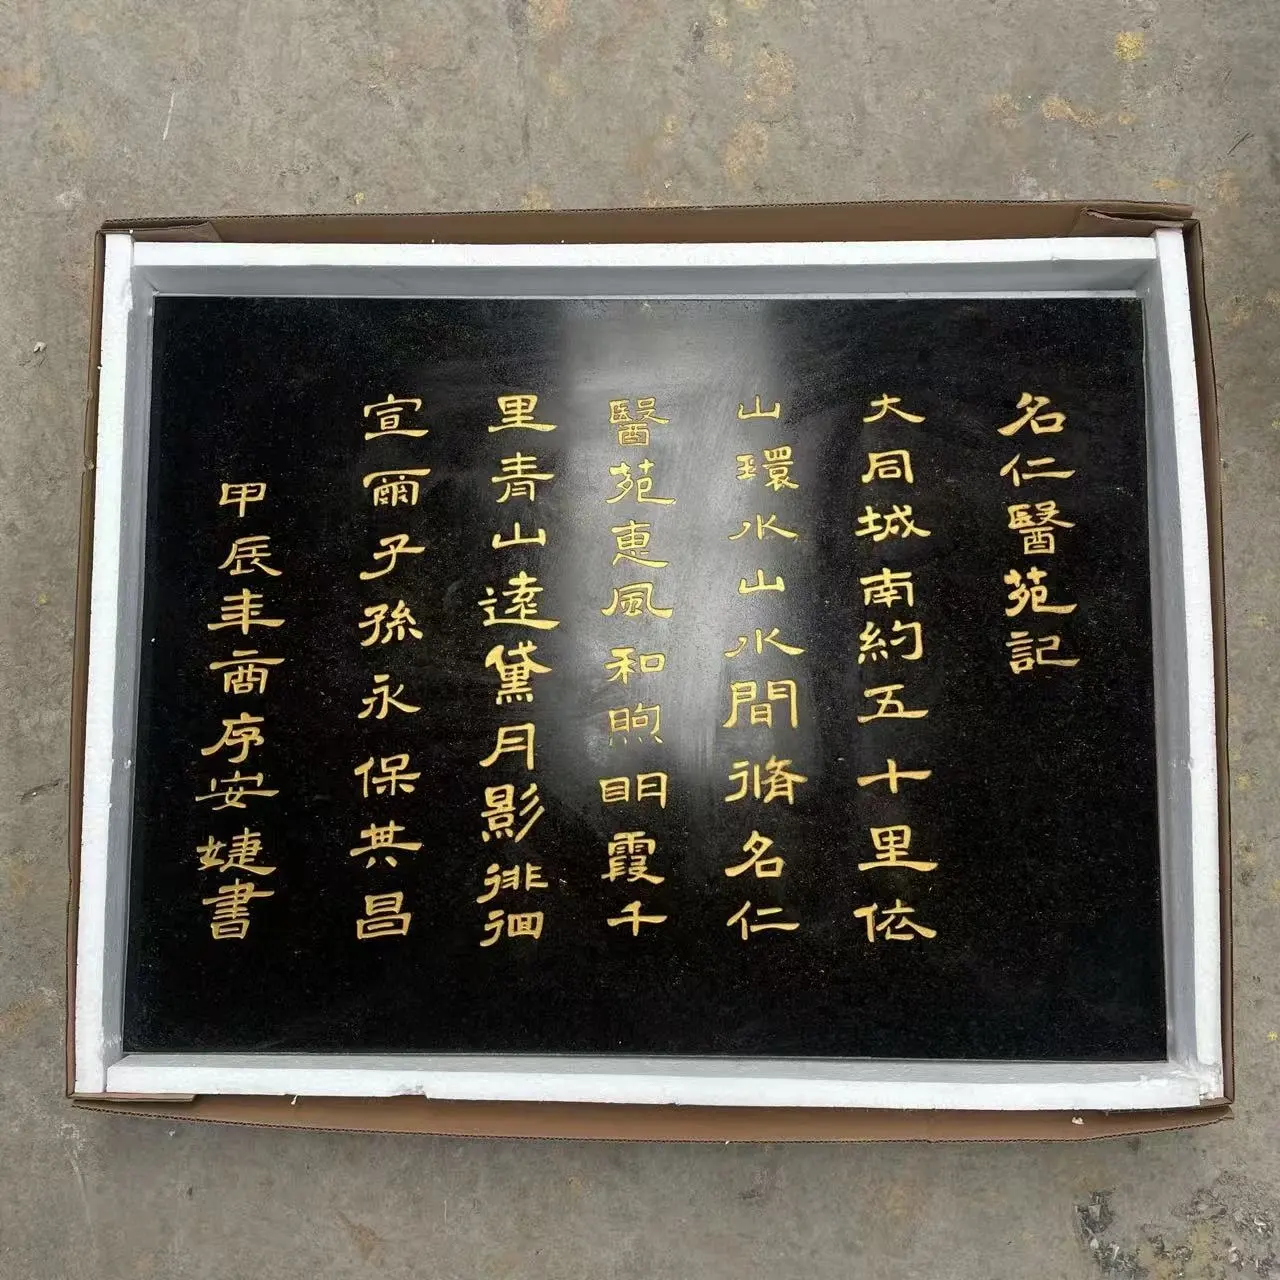 名仁醫苑記
大同城南約五十里依
山環水山水間脩名仁
醫苑惠風和煦明霞千
里青山遠黛月影徘徊
宣爾子孫永保其昌
甲辰年商序安婕書